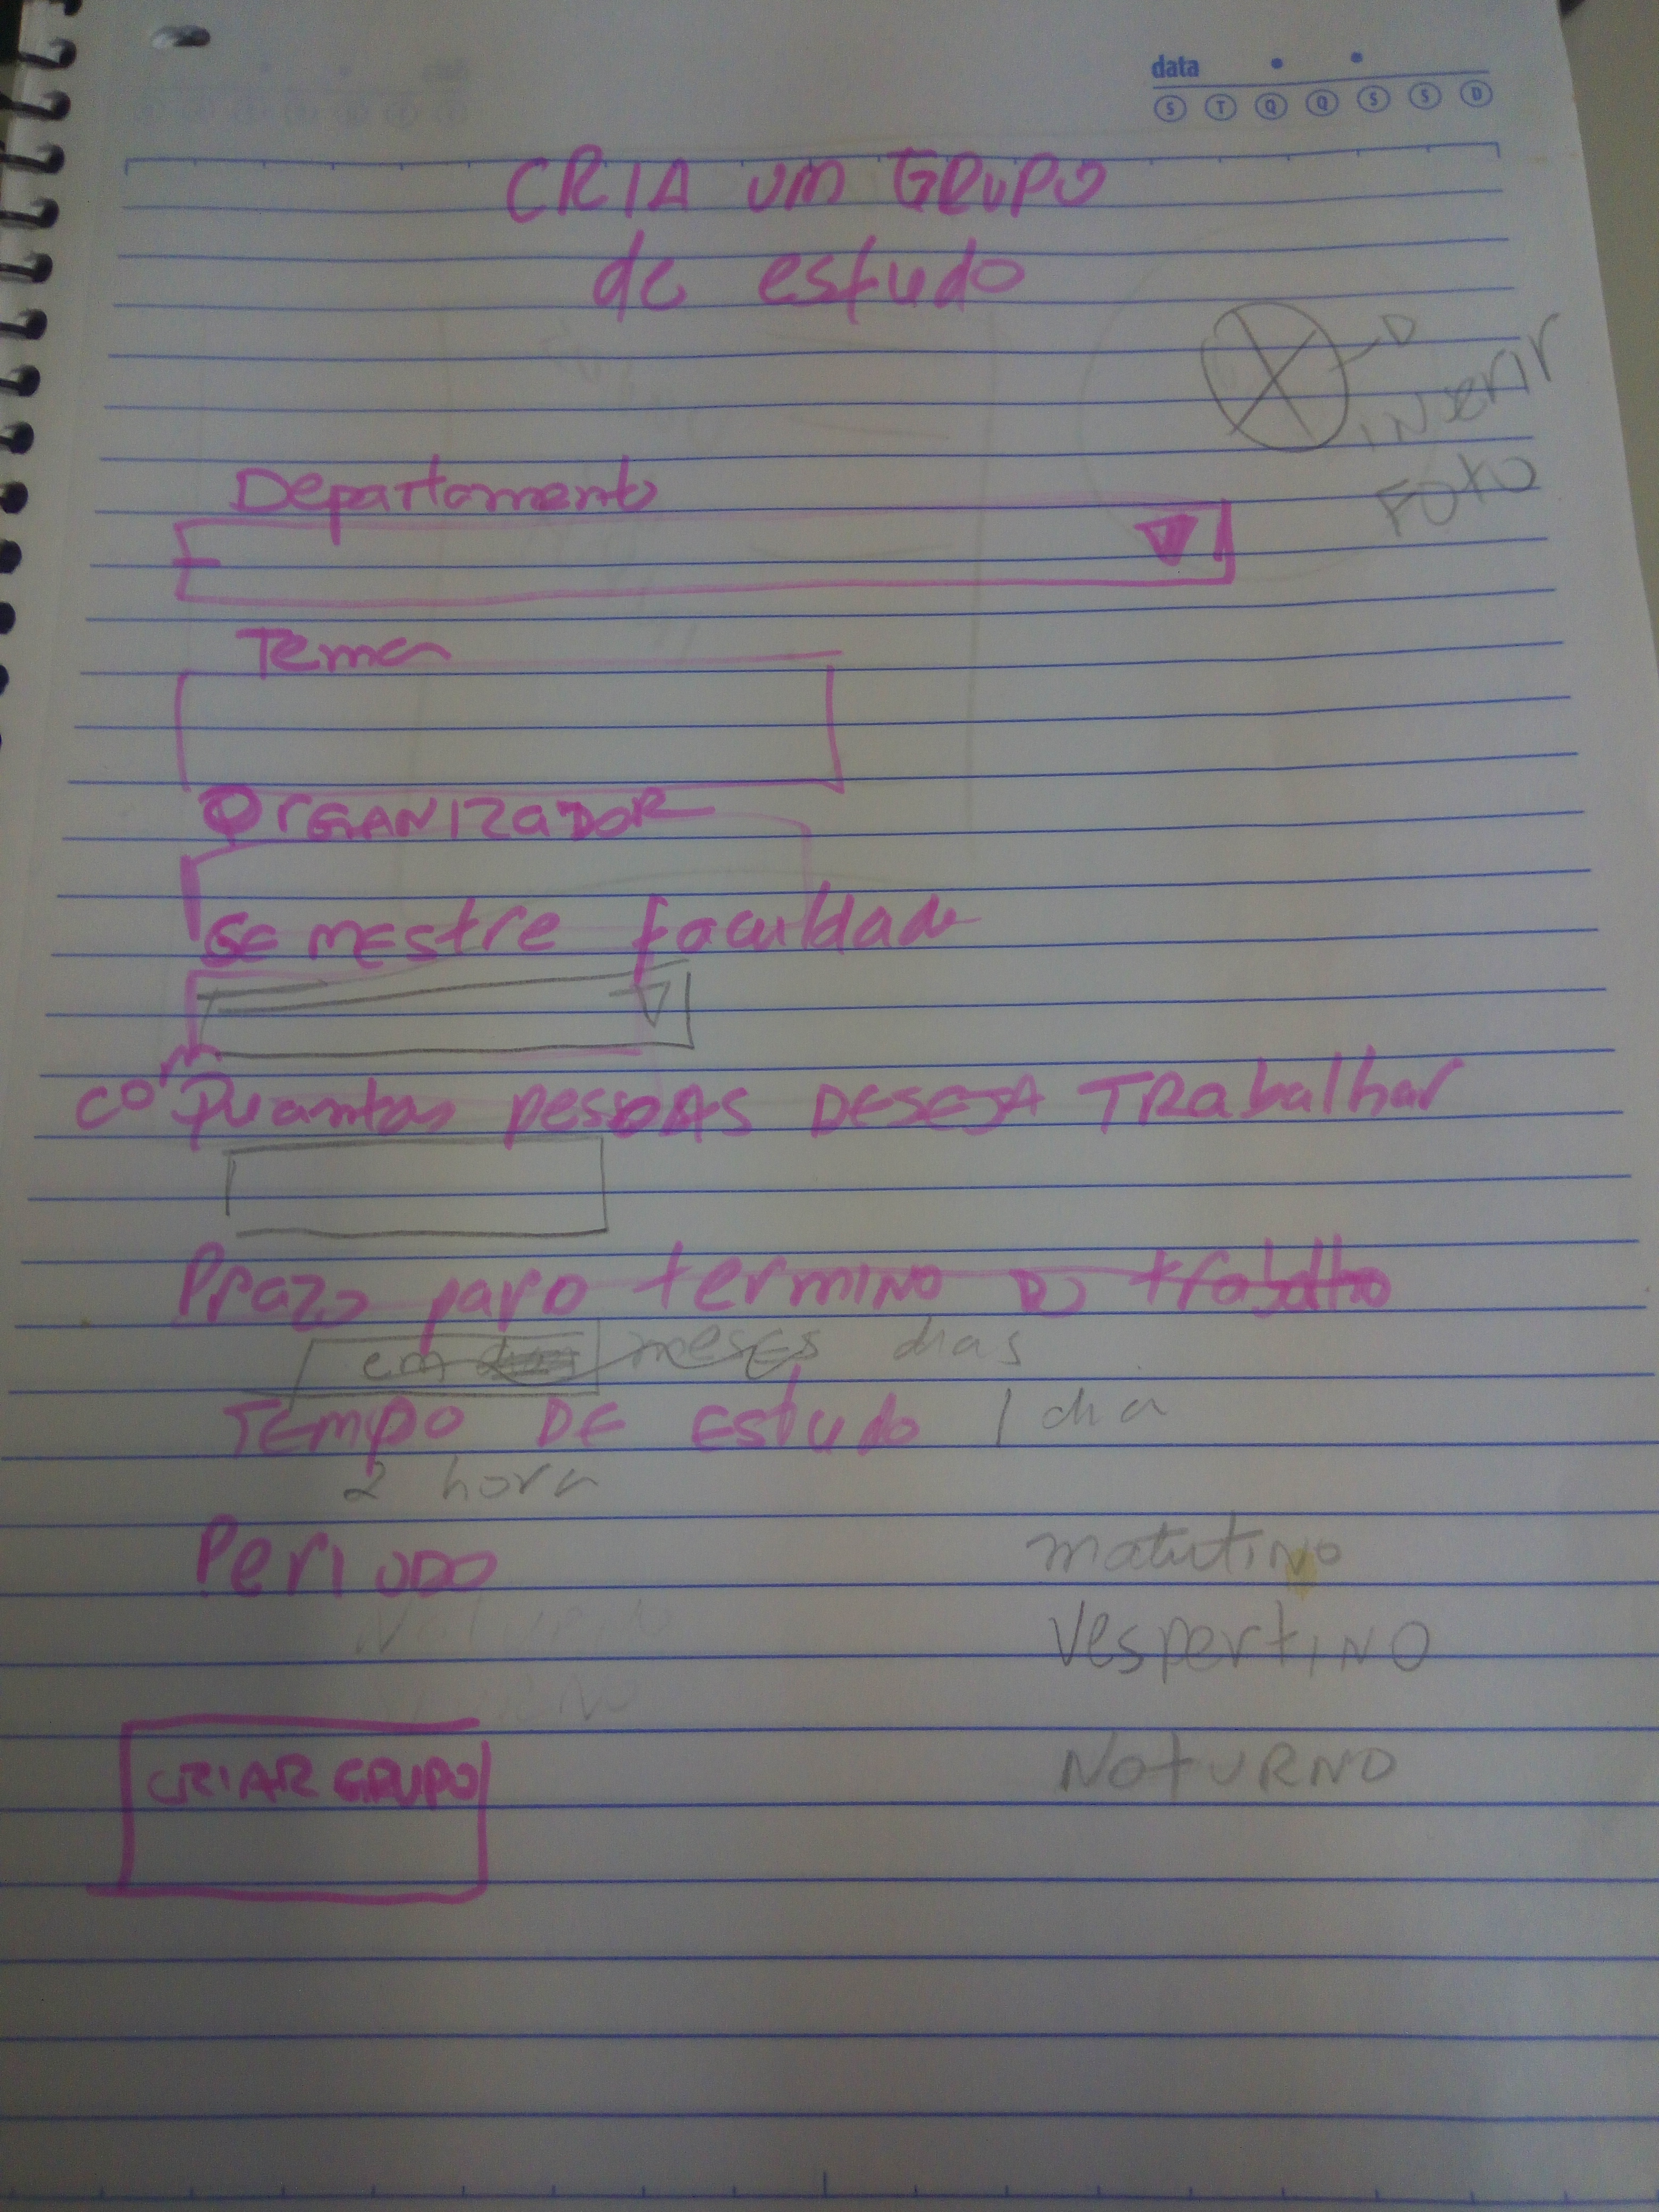 data
S T Q Q S S D
CRIA UM GRUPO
de estudo
INSERIR
FOTO
Departamento
Tema
ORGANIZADOR
SEMESTRE faculdade
com Quantas pessoas DESEJA TRabalhar
Prazo para termino DO trabalho
em meses dias
TEMPO DE Estudo 1 dia
2 hora
Periodo
matutino
VespertINO
NOTURNO
CRIAR GRUPO